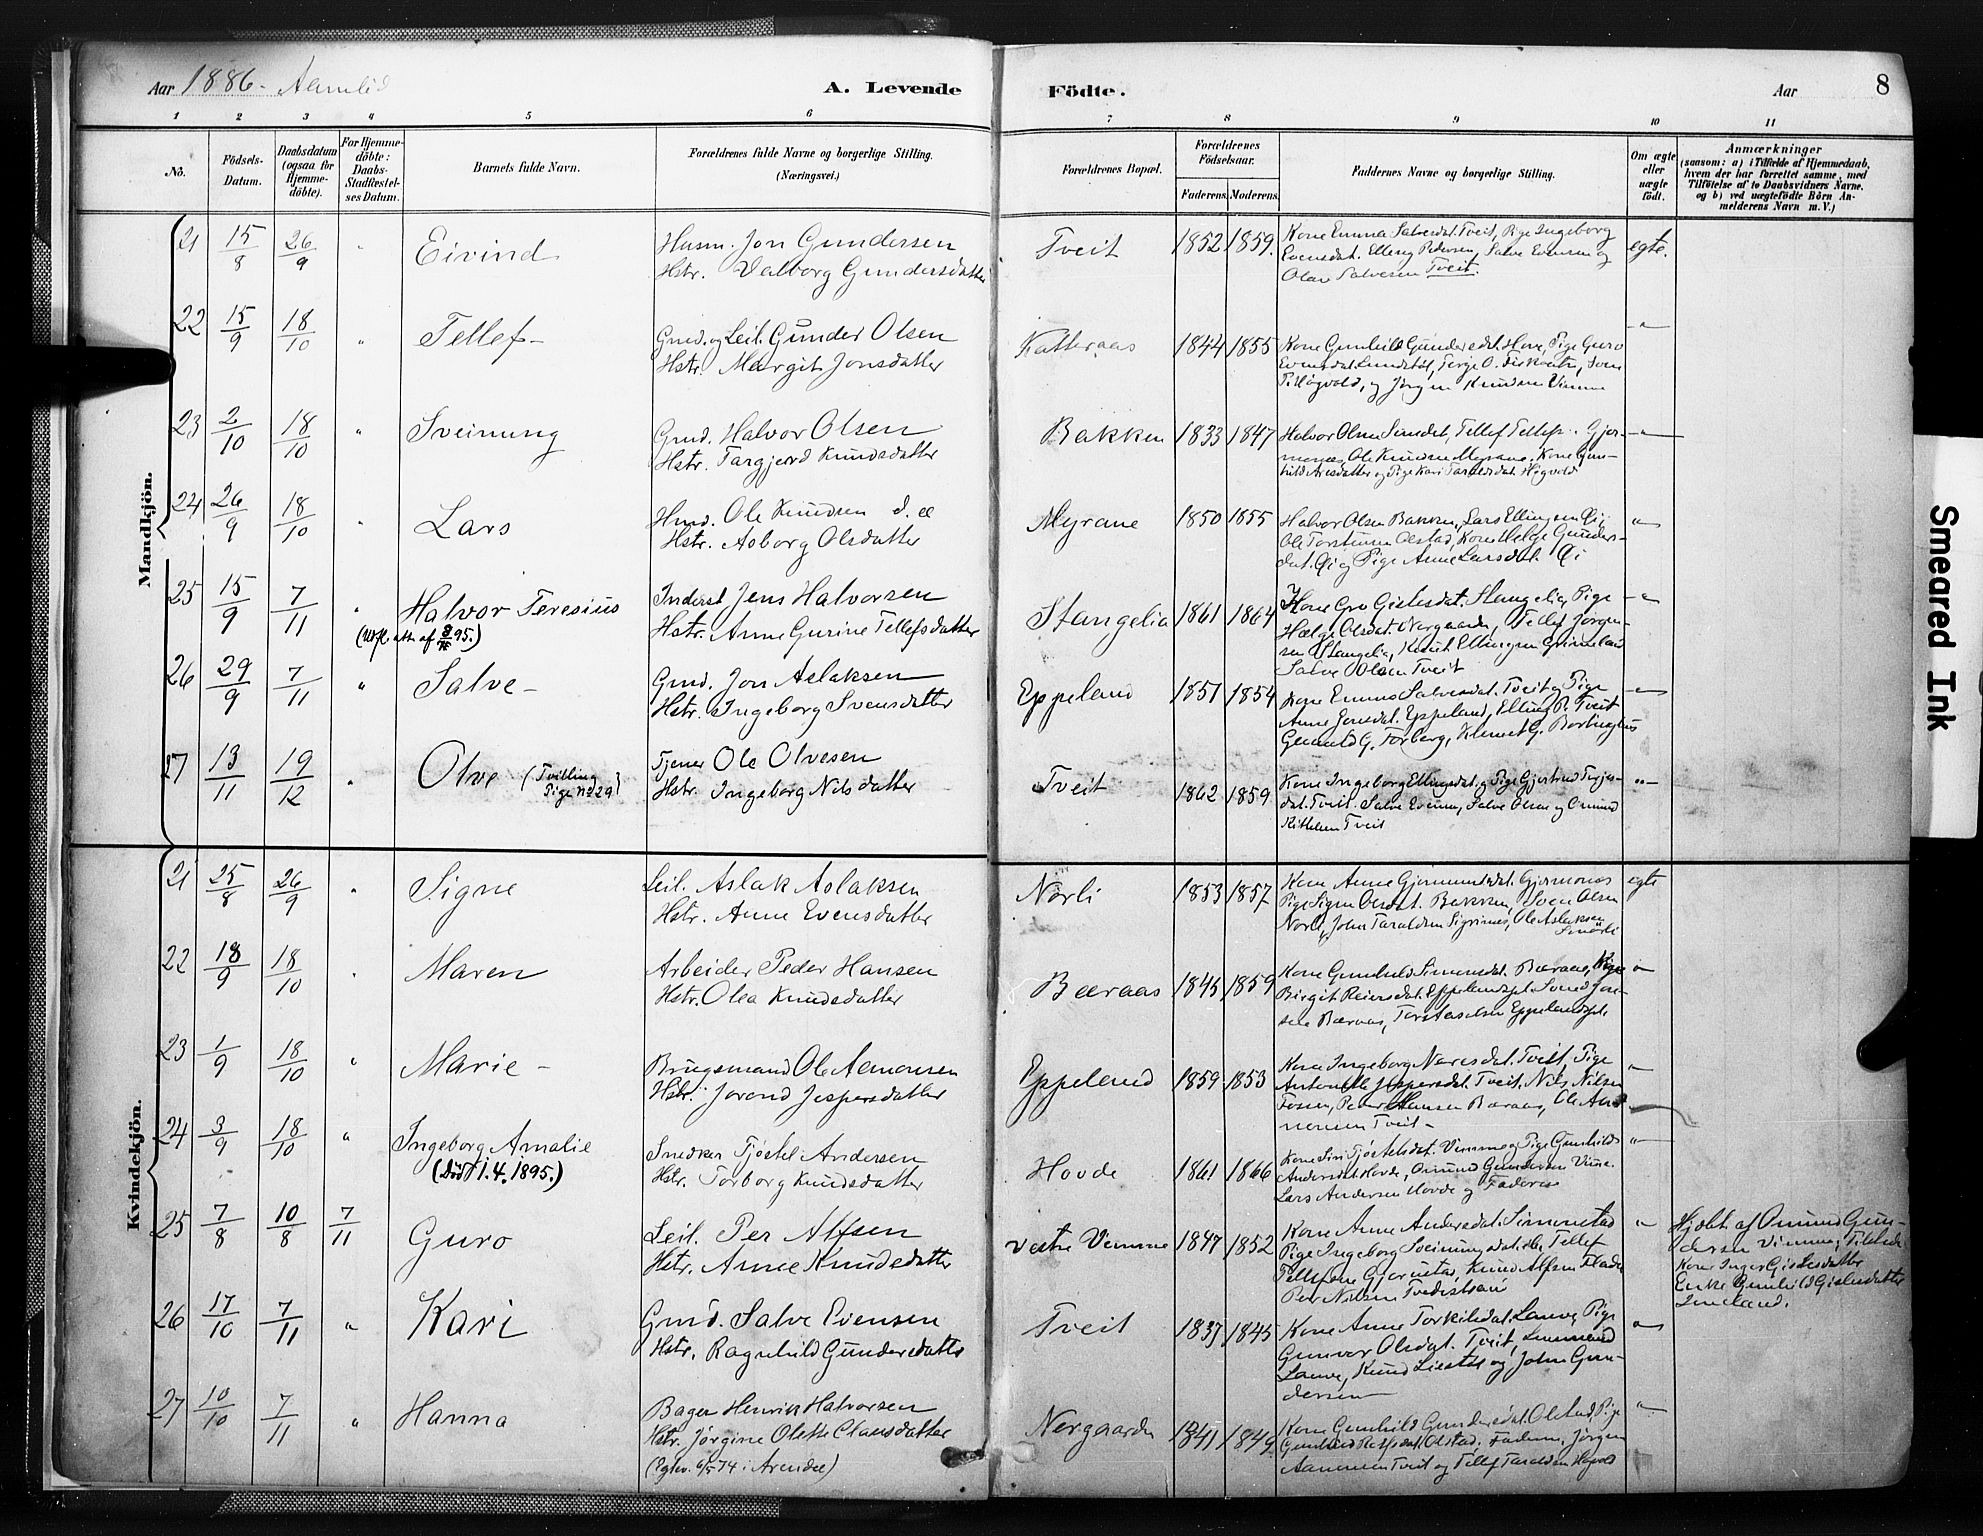 Aar 1886. Aamlid
A. Levende
Födte.
Aar
8
1 2 3 4 5 6 7 8 9 10 11
No.
Födsels-Datum.
Daabsdatum (ogsaa for Hjemme-döbte).
For Hjemme-döbte: Daabs-Stadfæstel-ses Datum.
Barnets fulde Navn.
Forældrenes fulde Navne og borgerlige Stilling. (Næringsvei.)
Forældrenes Bopæl.
Forældrenes Födselsaar.
Faderens. Moderens.
Faddernes Navne og borgerlige Stilling.
Om ægte eller uægte födt.
Anmærkninger
(saasom: a) i Tilfælde af Hjemmedaab, hvem der har forrettet samme, med Tilföielse af to Daabsvidners Navne, og b) ved uægtefödte Börn An-melderens Navn m. V.)
Mandkjön.
21 15/8 26/9 " Eivind
Husm. Jon Gundersen
Hstr. Valborg Gundersdatter
Tveit 1852 1859.
Kone Emma Salvesdat. Tveit, Pige Ingeborg
Evensdat. Elling Pedersen, Salve Evensen og
Olav Salvesen Tveit.
egte.
22 15/9 18/10 " Tellef
Grud. og Leil. Gunder Olsen
Hstr. Margit Jonsdatter
Katteraas 1844 1855
Kone Gunhild Gundersdat. Hove, Pige Guro
Evensdat. Lundstöl, Terje O.
og Jörgen Knudsen Vimme
23 2/10 18/10 " Sveinung
Grud. Halvor Olsen
Hstr. Targjerd Knudsdatter
Bakken 1833 1847
Halvor Olsen Simdet, Tellef Tellefs. Gjer-
menes, Ole Knudsen Myrane, Kone Gun-
hild Aresdatter og Pige Kari Taraldsdat. Högvold
24 26/9 18/10 " Lars
Ole Knudsen
Hstr. Aoborg Olsdatter
Myrane 1850 1855
Halvor Olsen Bakken, Lars Ellingsen Qi,
Ole Torstensen Olstad, Kone Helge Gunders-
dat. Qi og Pige Anne Larsdat. Qi
25 15/9 7/11 " Halvor Teresius
95.)
Inderst Jens Halvorsen
Hstr. Anne Gurine Tellefsdatter
Stangelia 1861 1864
Kone Gro Gislesdat. Stangelia, Pige
Hælge Olsdat. Nergaarden, Tellef Jörgen-
sen Stangelia, Knut Ellingsen Grimeland
Salve Olsen Tveit
26 29/9 7/11 " Salve
Grud. Jon Aslaksen
Hstr. Ingeborg Svensdatter
Eppeland 1851 1854
Kone Emma Salvesdat. Tveit og Pige
Anne Jonsdat. Eppeland, Elling P. Tveit
G. Torberg, Klemet G.
27 13/11 19/12 " Olve (Tvilling
Pige no 29)
Tjener Ole Olvesen
Hstr. Ingeborg Nilsdatter
Tveit 1862 1859
Kone Ingeborg Ellingsdat. og Pige Gjertrud Terjes-
dat. Tveit. Salve Evensen, Salve Olsen og Omund
Kittelsen Tveit
Kvindekjön.
21 25/8 26/9 " Signe
Leil. Aslak Aslaksen
Hstr. Anne Evensdatter
Norli 1853 1857
Kone Anne Gjermundsdat. Gjermones
Pige Signe Olsdat. Bakken, Sven Olsen
Norli, John Taraldsen Sigrines, Ole Aslaksen
Smörli
egte
22 18/9 18/10 " Maren
Arbeider Peder Hansen
Hstr. Olea Knudsdatter
Bæraas 1845 1859
Kone Gunhild Simensdat. Bæraas, Pige
Birgit Reiersdat. Eppelandspl.
Bæraas, Eppelandspl.
23 1/9 18/10 " Marie
Brugsmand Ole Aamonsen
Hstr. Jorand Jespersdatter
Eppeland 1859 1853
Kone Ingeborg Naresdat. Tveit, Pige
Antonette Jespersdat. Tveit, Nils Nilsen
Fossen, Peder Hansen Bæraas, Ole Aas-
monsen Tveit
24 3/9 18/10 " Ingeborg Amalie
(Död 1.4.1895.)
Snedker Tjöstel Andersen
Hstr. Torborg Knudsdatter
Hovde 1861 1866
Kone Siri Tjöstelsdat. Vimme og Pige Gunhild
Andersdat. Hovde, Omund Gundersen Vime.
Lars Andersen Hovde og Faderen
25 7/8 10/8 7/11 Guro
Leil. Per Alfsen
Hstr. Anne Knudsdatter
Vestre Vimme 1847 1852
Kone Anne Andersdat. Simonstad
Pige Ingeborg Sveinungsdat. Tellef
Tellefsen Gjernestad, Knud Alfsen
Per Nilsen
Hjdbt. af Omund Gun-
dersen Vimme,
Kone Inger Gislesdatter
Enke Gunhild Gislesdatter
Simeland.
26 17/10 7/11 " Kari
Grud. Salve Evensen
Hstr. Ragnhild Gundersdatter
Tveit 1837 1845
Kone Anne Torkildsdat. Lauve, Pige
Gunvor Olsdat. Tveit,
Lauve, Knud og John Gun-
dersen
27 10/10 7/11 " Hanna
Bager Henrik Halvorsen
Hstr. Jörgine Olette Clausdatter
(Egtev. 6/5 74 i Arendal)
Nergaarden 1841 1849
Kone Gunhild Gundersdat. Olstad, Pige
Olstad, Faderen, Jörgen
Aanensen Tveit og Tellef Taraldsen Högvold
Smeared Ink